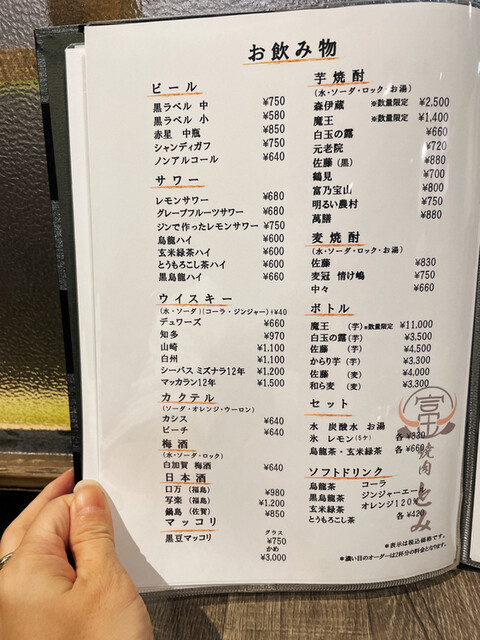 お飲み物
ビール
黒ラベル 中 ¥750
黒ラベル 小 ¥580
赤星 中瓶 ¥850
シャンディガフ ¥750
ノンアルコール ¥640
サワー
レモンサワー ¥680
グレープフルーツサワー ¥680
ジンで作ったレモンサワー ¥750
烏龍ハイ ¥600
玄米緑茶ハイ ¥600
とうもろこし茶ハイ ¥600
黒烏龍ハイ ¥660
ウイスキー
(水・ソーダ)(コーラ・ジンジャー)+¥40
デュワーズ ¥660
知多 ¥970
山崎 ¥1,100
白州 ¥1,100
シーバス ミズナラ12年 ¥1,200
マッカラン12年 ¥1,500
カクテル
(ソーダ・オレンジ・ウーロン)
カシス ¥640
ピーチ ¥640
梅酒
(水・ソーダ・ロック)
白加賀 梅酒 ¥640
日本酒
口万 (福島) ¥980
写楽 (福島) ¥1,200
鍋島 (佐賀) ¥850
マッコリ
グラス
黒豆マッコリ ¥750
かめ
¥3,000
芋焼酎
(水・ソーダ・ロック・お湯)
森伊蔵 ※数量限定 ¥2,500
魔王 ※数量限定 ¥1,400
白玉の露 ¥660
元老院 ¥720
佐藤 (黒) ¥880
鶴見 ¥700
富乃宝山 ¥800
明るい農村 ¥750
萬膳 ¥880
麦焼酎
(水・ソーダ・ロック・お湯)
佐藤 ¥830
麦冠 情け嶋 ¥750
中々 ¥660
ボトル
魔王 (芋)※数量限定 ¥11,000
白玉の露 (芋) ¥3,500
佐藤 (芋) ¥4,500
からり芋 (芋) ¥3,300
佐藤 (麦) ¥4,000
和ら麦 (麦) ¥3,300
セット
水 炭酸水 お湯
氷 レモン(5ケ) 各¥330
烏龍茶・玄米緑茶 各¥660
ソフトドリンク
烏龍茶 コーラ
黒烏龍茶 ジンジャーエール
玄米緑茶 オレンジ120
とうもろこし茶 各¥420
*表示は税込価格です。
*濃い目のオーダーは2杯分の料金となります。
富
焼肉 とみ